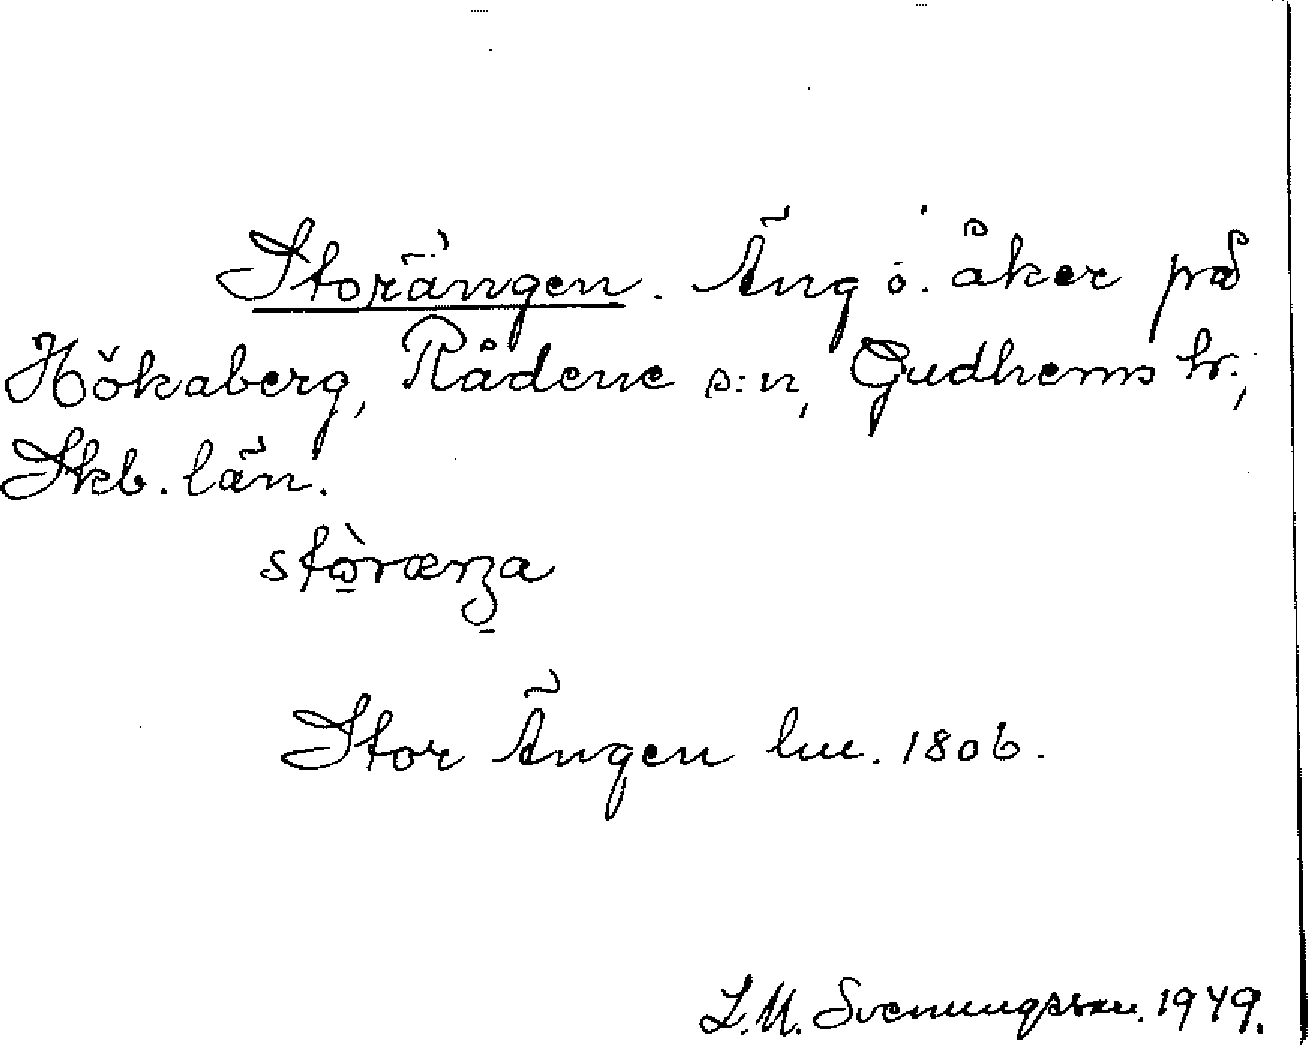 Storängen. Äng o. åker på
Hökaberg, Rådene s:n, Gudhems hr.,
Skb. län.
stòræŋa
Stor Ängen lm. 1806.
L. M. Svenungsson. 1949.